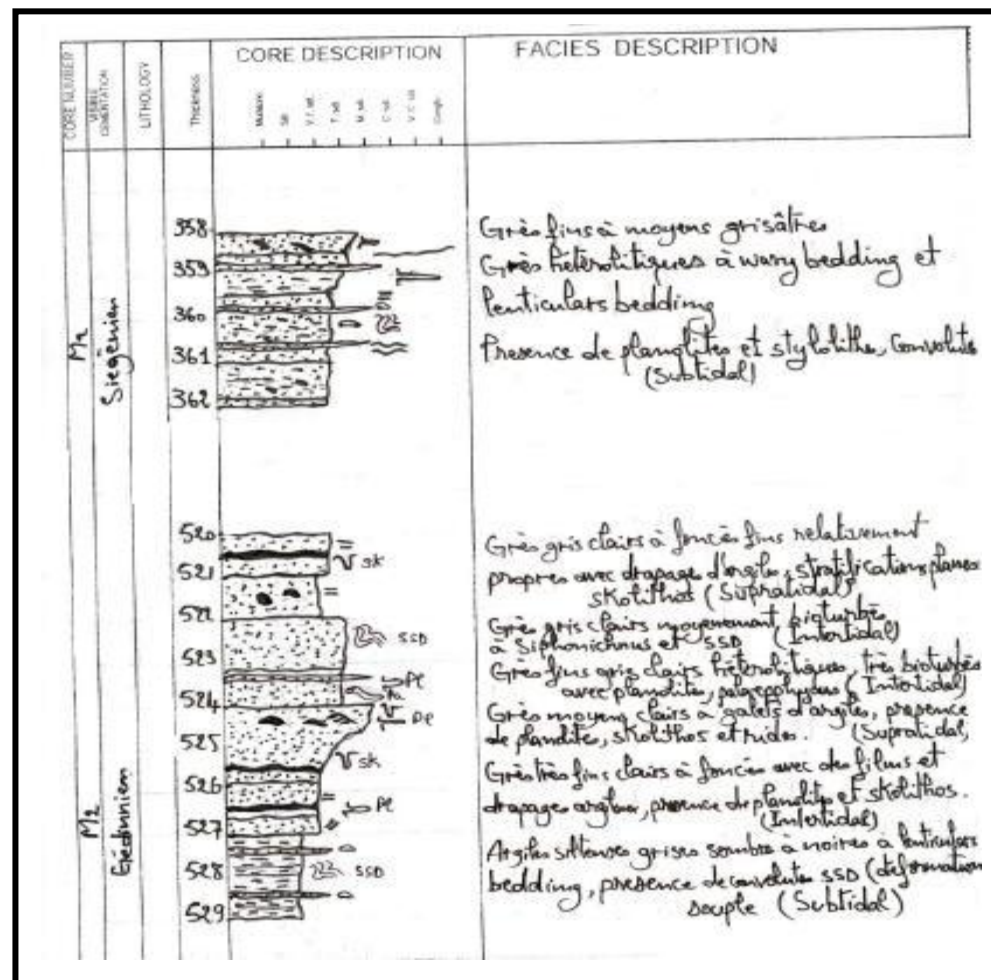 CORE NUMBER
VISIBLE CEMENTATION
LITHOLOGY
Thickness
CORE DESCRIPTION
FACIES DESCRIPTION
Silt
V.F. sd.
F. sd.
M. sd.
C. sd.
V.C. sd.
M2
Siegénien
358
359
360
361
362
Grès fins à moyens grisâtres
Grès héterolitiques à wavy bedding et
lenticulars bedding
Presence de planolites et stylolithe, Convolute
(Subtidal)
M2
Gédinnien
520
521
522
523
524
525
526
527
528
529
SK
SSD
Pl
Pa
Pl
SK
Pl
SSD
Grès gris clairs à foncés fins relativement
propres avec drapage d'argiles, stratifications planes
skolithos (Supratidal)
Grès gris clairs moyenement bioturbés
à Siphonichnus et SSD (Intertidal)
Grès fins gris clairs héterolitiques, très bioturbés
avec planolites, (Intertidal)
Grès moyens clairs à galets d'argiles, presence
de planolites, skolithos et rides. (Supratidal)
Grès très fins clairs à foncés avec des films et
drapages argileux, presence de planolites et skolithos.
(Intertidal)
Argiles silteuses grises sombre à noires à lenticulars
bedding, presence de convolutes SSD (deformation
souple (Subtidal)